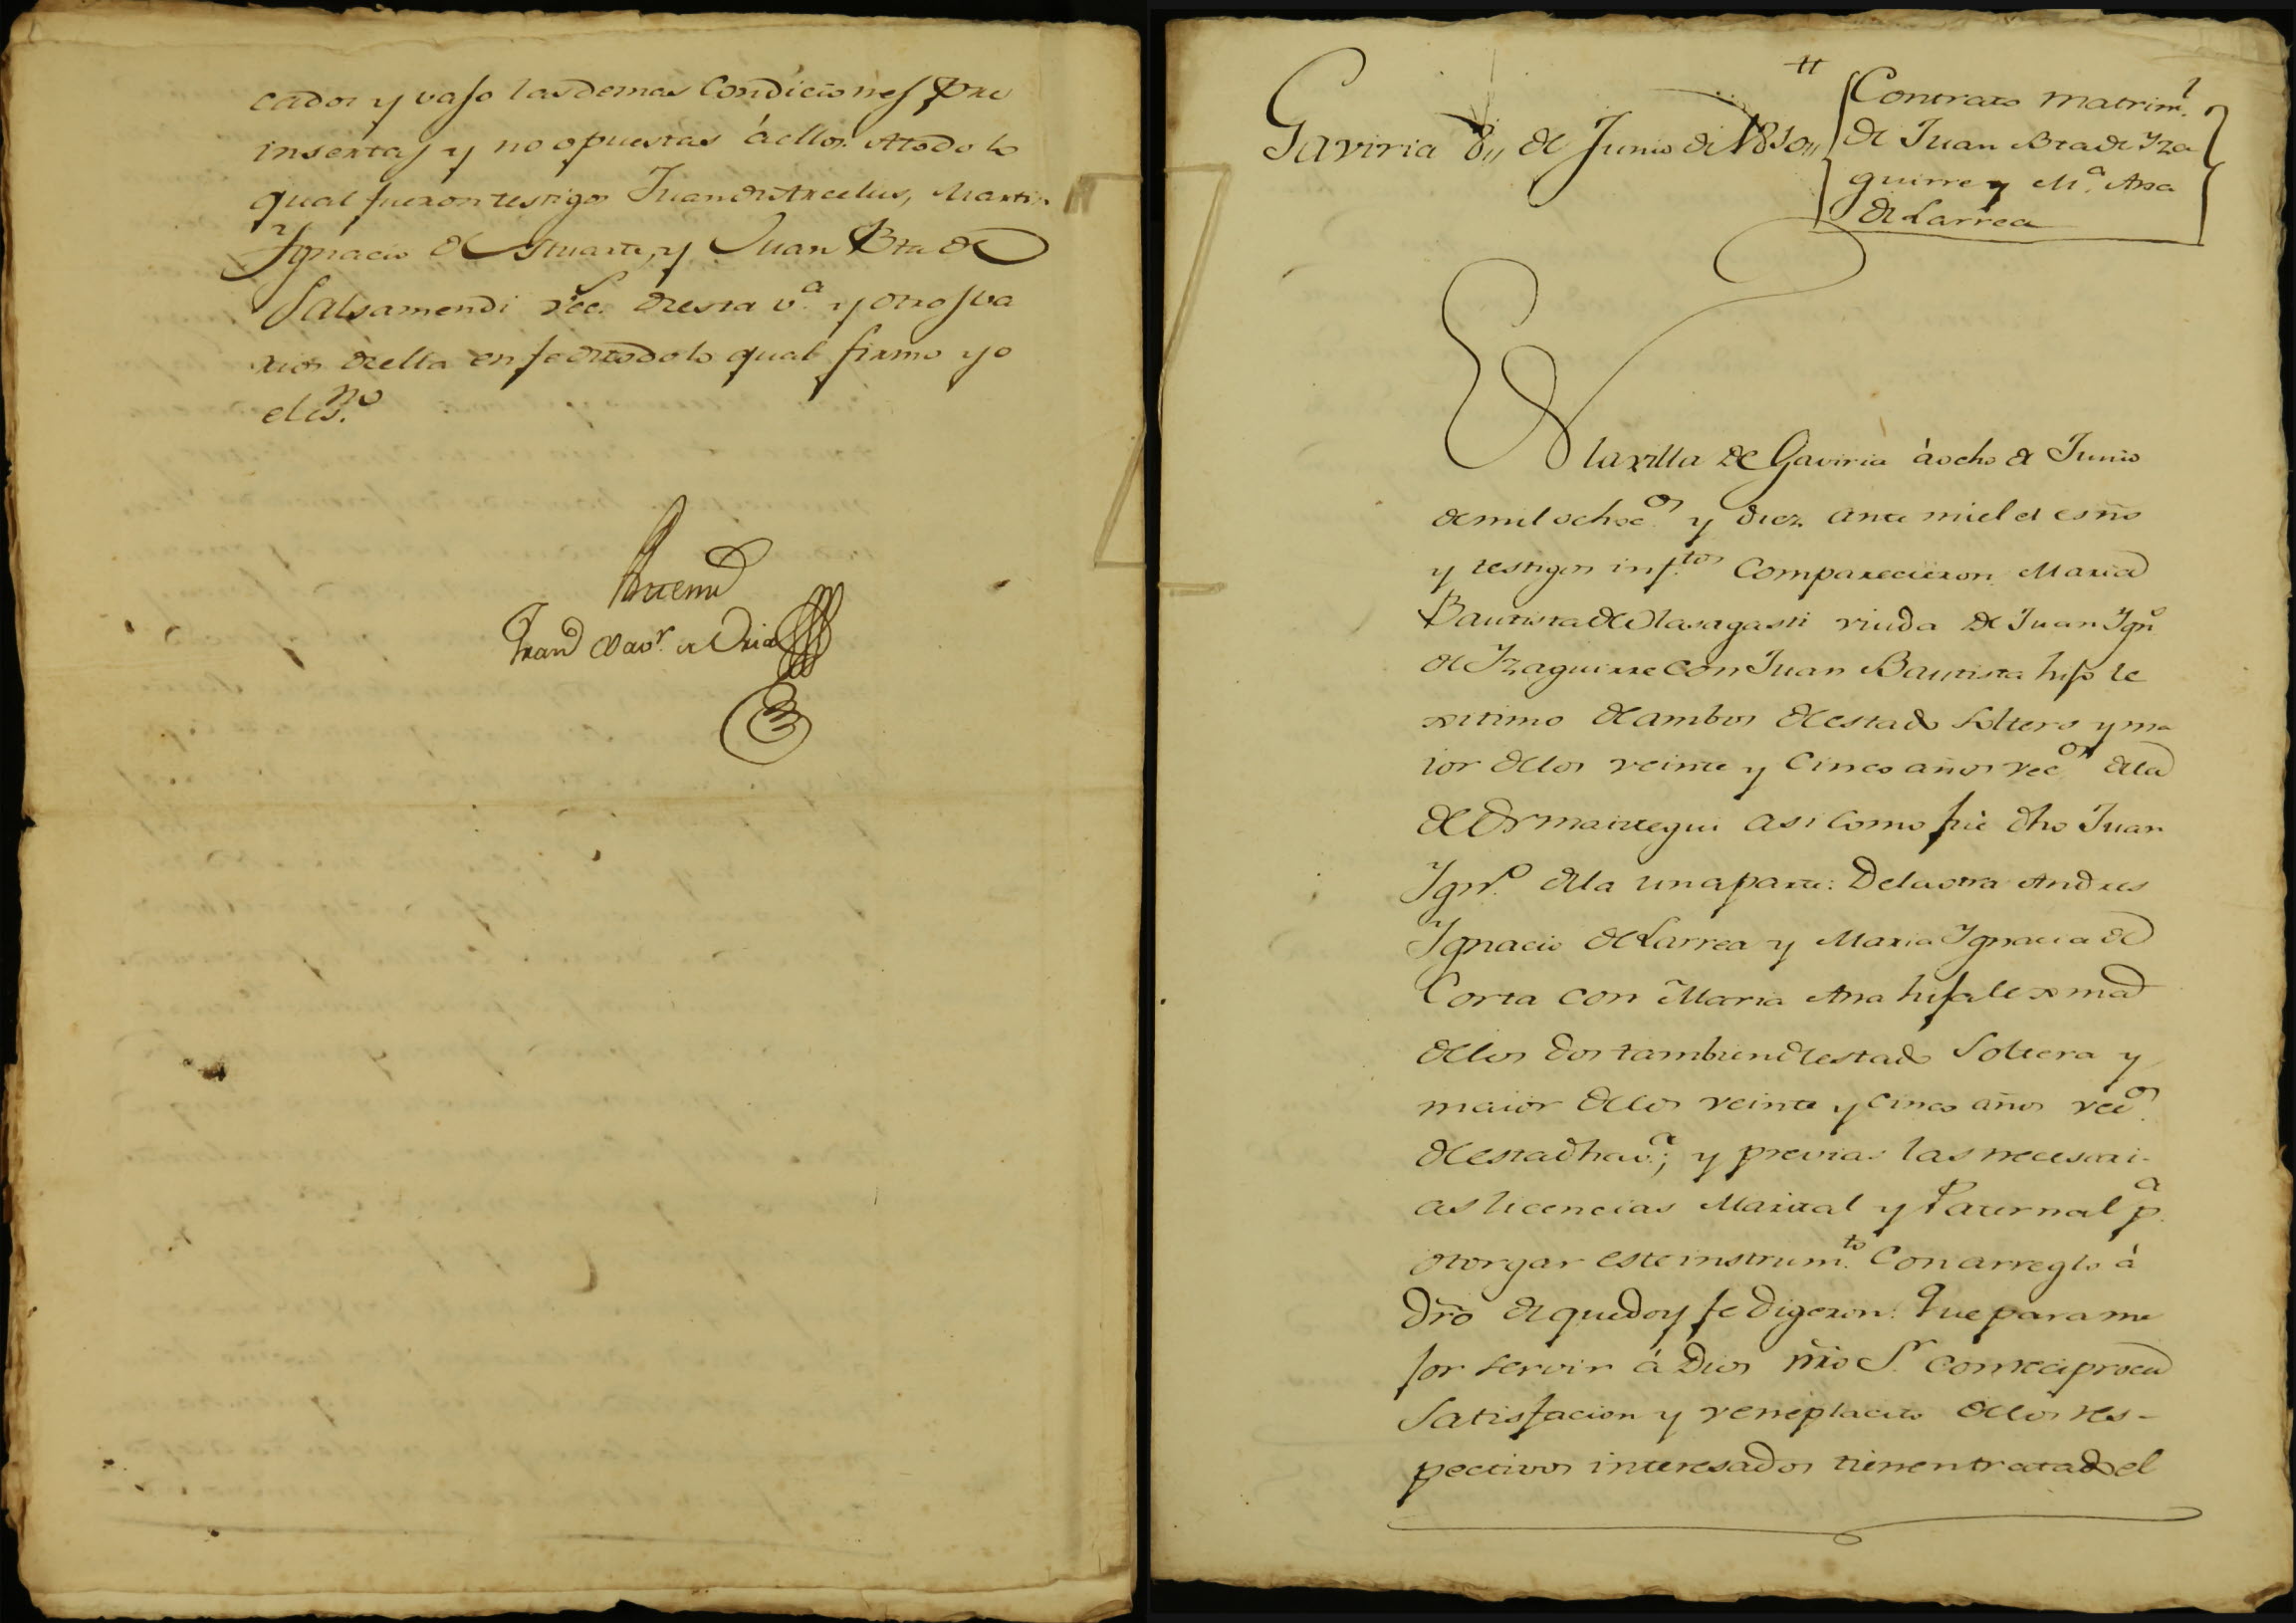 cados y vajo las demas Condiciones pre
insertas y no opuestas á ellos. A todo lo
qual fueron testigos Juan de Arcelus, Martin
Ignacio de Ituarte, y Juan Bta de
Salsamendi vec.s de esta v.a y otros va
rios de ella en fe de todo lo qual firmo yo
el es.no
Antemi
Fran.co Xav.r de Oria
Gaviria 8,, de Junio de 1810,,
Contrato matrim.l
de Juan Bta de Yza
guirre y M.a Ana
de Larrea
EN la villa de Gaviria á ocho de Junio
de mil ochoc.os y diez ante mi el el esño
y testigos inf.tos Comparecieron Maria
Bautista de Olasagasti viuda de Juan Ign.o
de Yzaguirre con Juan Bautista hijo le
xitimo de ambos de estado Soltero y ma
ior de los veinte y Cinco años vec.os de la
de Ormaiztegui asi como fué dho Juan
Ign.o de la una parte: De la otra Andres
Ignacio de Larrea y Maria Ignacia de
Corta con Maria Ana hija lexma
de los dos tambien de estado Soltera y
maior de los veinte y Cinco años vec.os
de esta dha v.a; y previas las necesari-
as licencias Marital y Paternal p.a
otorgar este instrum.to Con arreglo á
Dro de que doy fe Digeron: Que para me
jor servir á Dios ñro S.r con reciproca
Satisfacion y veneplacito de los res-
pectivos interesados tienen tratado el